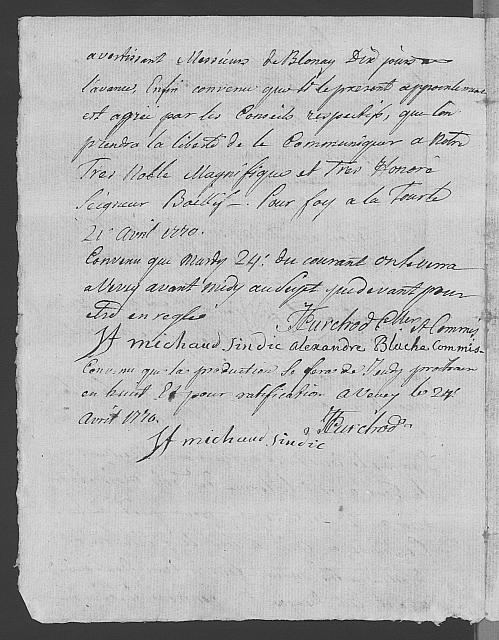 avertissant Messieurs de Blonay Dix jours
l'avance, Enfin convenu que si le present appointement
est agréé par les Conseils respectifs, que lon
prendra la liberté de le Communiquer a Notre
Tres Noble Magnifique et Tres Honoré
Seigneur Baillif. Pour foy a la Tour le
21e Avril 1770.
Convenu que Mardy 24e du courant on
a Vevey avant midy au Sujet que devant pour
etre en reglé
Curchod et Commis
JF michaud Sindic alexandre Blucha Commis
Convenu que la production Se fera de Jeudy prochain
en huit Et pour ratification a Vevey le 24e
Avril 1770.
Curchod
JF michaud Sindic